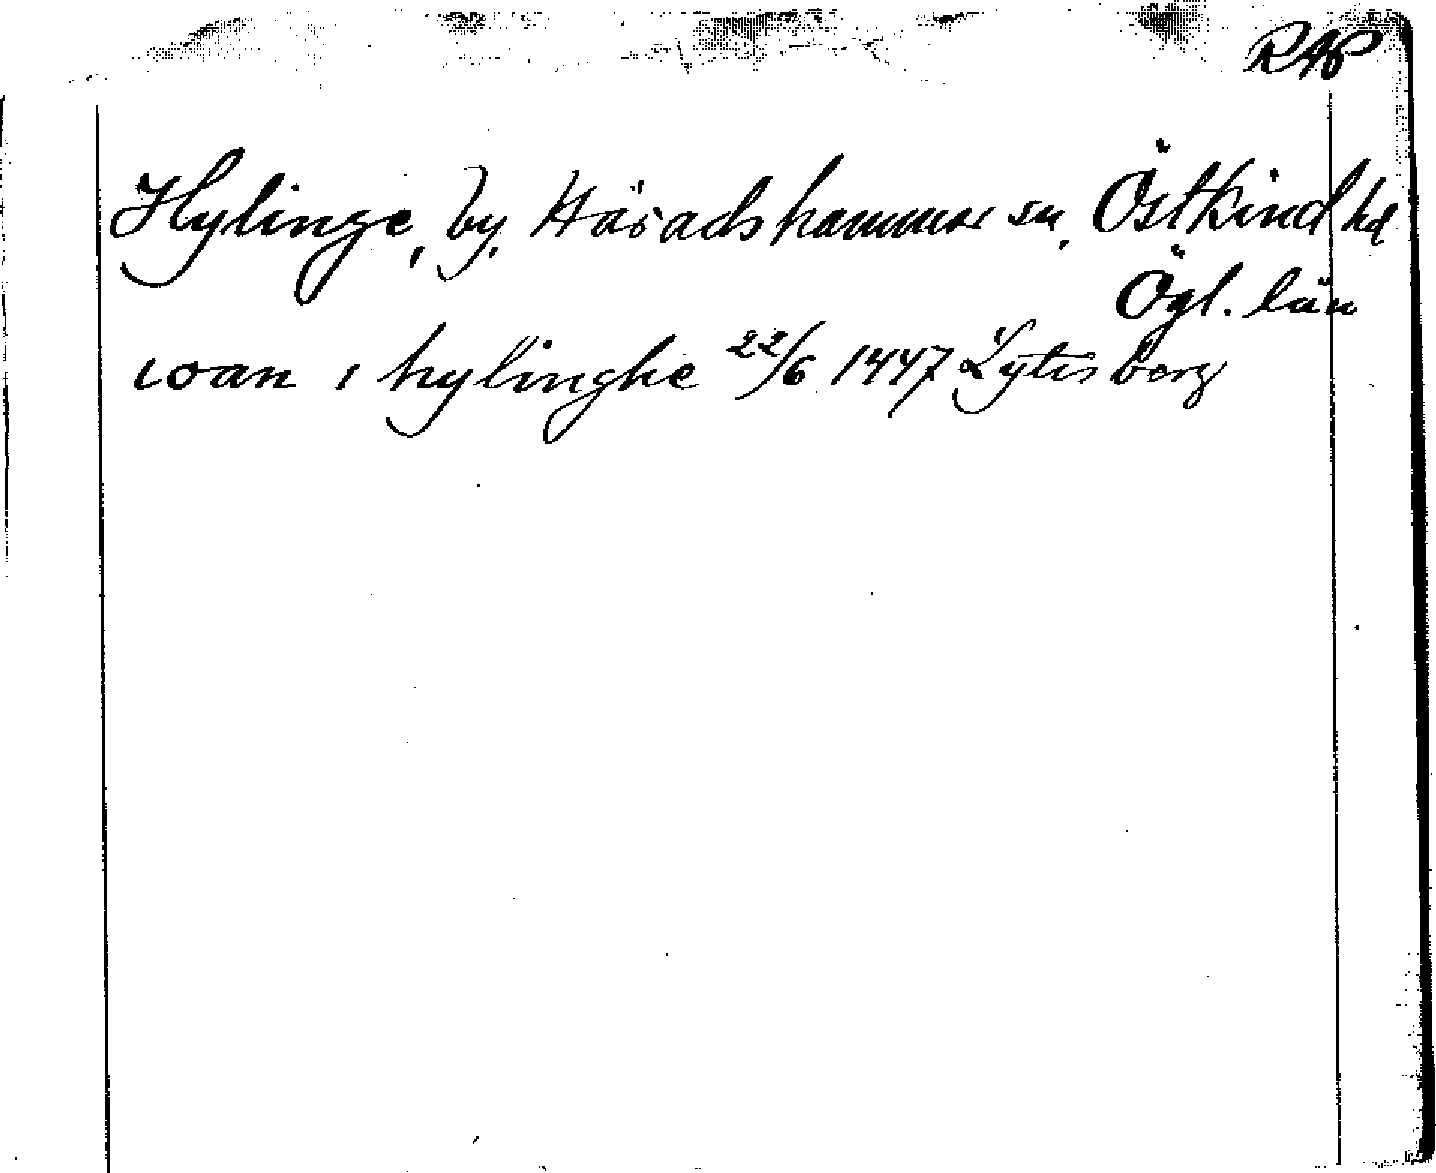 RAP
Hylinge, by, Häradshammar sn, Östkind hd
Ögl. län
ioan i hylinghe 22/6 1447 Lytisberg